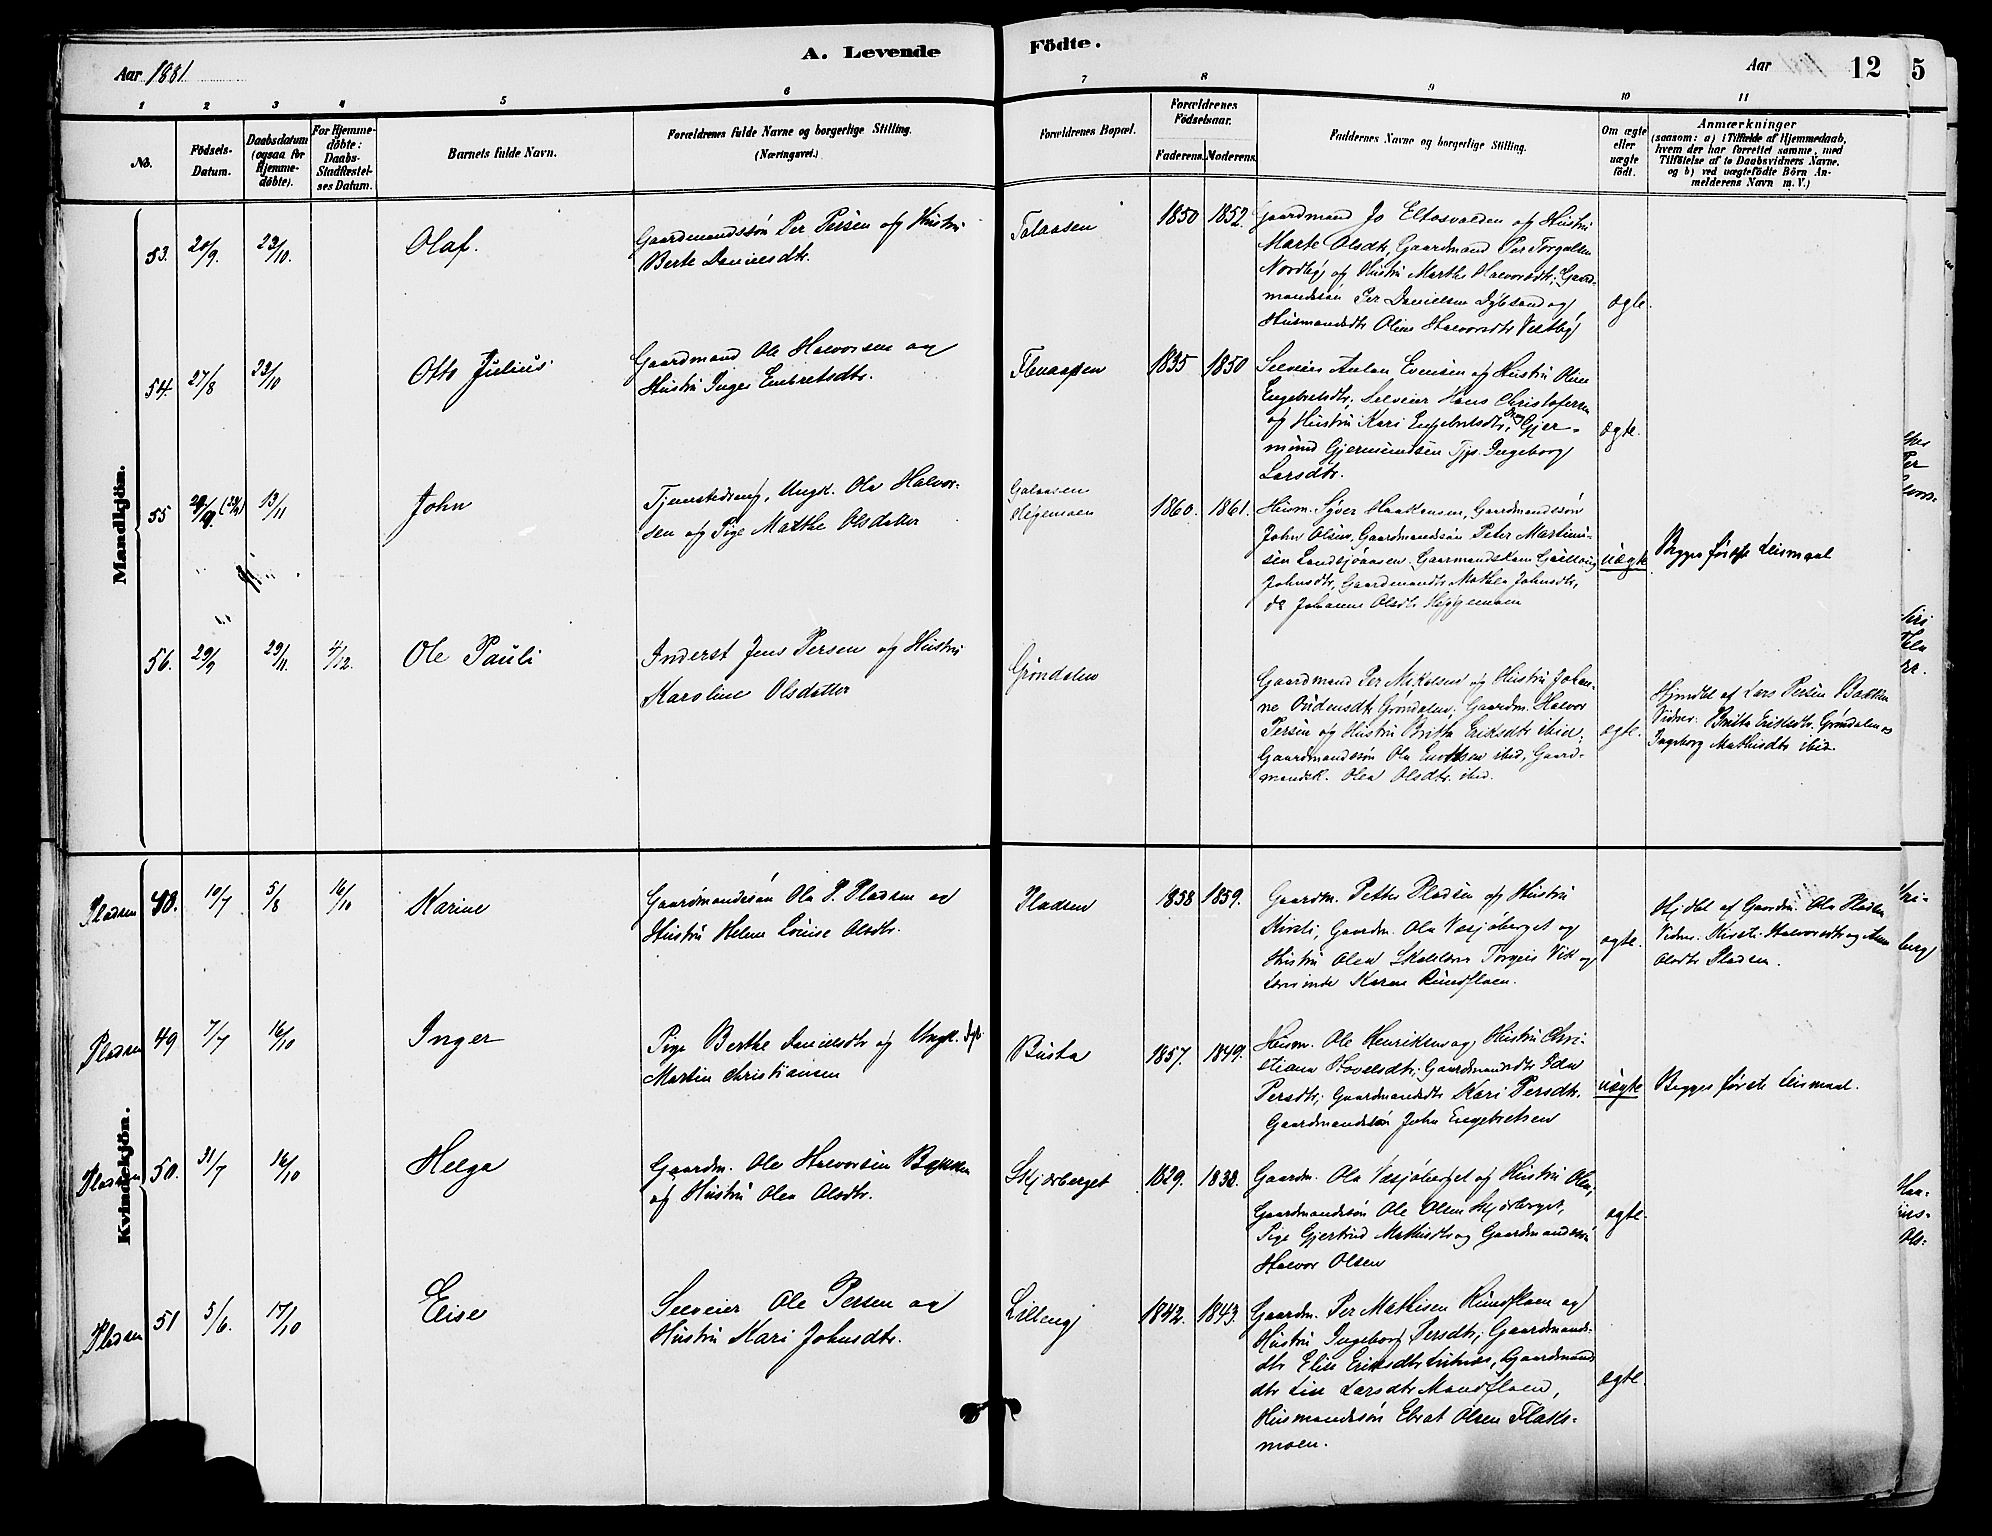 Aar 1881.
A. Levende
Födte.
Aar
12
5
1
2
3
4
5
6
7
8
9
10
11
No.
Födsels-
Datum.
Daabsdatum
(ogsaa for
Hjemme-
döbte).
For Hjemme-
döbte:
Daabs-
Stadfæstel-
ses Datum.
Barnets fulde Navn.
Forældrenes fulde Navne og borgerlige Stilling.
(Næringsvei.)
Forældrenes Bopæl.
Forældrenes
Födselsaar.
Faderens.
Moderens.
Faddernes Navne og borgerlige Stilling.
Om ægte
eller
uægte
födt.
Anmærkninger
(saasom: a) i Tilfælde af Hjemmedaab,
hvem der har forrettet samme, med
Tilföielse af to Daabsvidners Navne,
og b) ved uægtefödte Börn An-
melderens Navn m. V.)
Mandkjön.
53.
20/9.
23/10.
Olaf.
Gaardmandssön Per Persen og Hustru
Berte Danielsdtr.
1850
1852.
Gaardmand Jo Eltasvolden og Hustru
Marte Olsdtr, Gaardmand Per Torgalsen
Nordby og Hustru Marthe Halvorsdtr, Gaard-
mandssön Per Danielsen Dybsand og
Husmandsdtr Oline Halvorsdtr Vestby
ægte.
54.
27/8
23/10
Otto Julius
Gaardmand Ole Halvorsen og
Hustru Inger Embretsdtr.
Flenaasen
1835
1850
Selveier Anton Evensen og Hustru Oline
Engebretsdtr. Selveier Hans Christofersen
og Hustru Kari Engebretsdtr, Gjer-
mund Gjermundsen Tjp. Ingeborg
Larsdtr.
ægte.
55
13/11
John
Tjenestedreng, Ungk. Ola Halvor-
sen og Pige Mathe Olsdatter
Galaasen
1860.
1861.
Husm. Syver Haakensen, Gaardmandssön
John Olsen, Gaardmandssön Peter Martinu-
sen Landsjøaasen. Gaarmandskone Gulloug
Johnsdtr, Gaardmandsdtr Mathea Johnsdtr,
do Johanne Olsdtr
uægte
Begges første Leiermaal
56.
29/9
29/11.
4/12.
Ole Pauli
Inderst Jens Persen og Hustru
Karoline Olsdatter
Gröndalen
Gaardmand Per Mikelsen og Hustru Johan-
ne Oudensdtr Gröndalen. Gaardm. Halvor
Persen og Hustru Britta Eriksdtr ibid.
Gaardmandssön Ola Knutsen ibid, Gaard-
mandsk. Olea Olsdtr. ibid.
ægte.
Hjemdbt af Lars Persen Bakken
Vidner: Britta Eriksdtr. Gröndalen og
Ingeborg Mathisdtr ibid.
Kvindekjön.
Pladsen
48.
10/7
5/8
16/10
Karine
Gaardmandssön Ola P. Pladsen og
Hustru Helene Louise Olsdtr.
Pladsen
1858
1859.
Gaardm. Petter Pladsen og Hustru
Kirsti, Gaardm. Ola Væsjøberget og
Hustru Olea Torgeis Vik og
Karen Rundfloen.
ægte.
Hjdbt af Gaardm. Ola Pladsen
Vidner. Kirsti Halvorsdtr og Anne
Olsdtr Pladsen.
Pladsen
49
7/7
16/10
Inger
Pige Berthe Danielsdtr og Ungk.
Martin Christiansen
Busta
1857.
1849.
Husm. Ole Henriksen og Hustru Chri-
stiane Gaardmandsdtr Ida
Persdtr, Gaardmandsdtr Kari Persdtr.
Gaardmandssön John Engebretsen
uægte
Begges første Leiermaal.
Pladsen
50.
31/7
16/10
Helga
Gaardm. Ole Halvorsen Bakken
og Hustru Olea Olsdtr.
Skjærberget
1829.
1838.
Gaardm. Ola Væsjøberget og Hustru Olea,
Gaardmandssön Ole Olsen Skjærberget,
Pige Gjertrud Mathisdtr og Gaardmandssön
Halvor Olsen
ægte.
Pladsen
51
5/6.
17/10
Elise
Selveier Ole Persen og
Hustru Kari Johnsdtr.
Lilleng
1842.
1843.
Gaardm. Per Mathisen Rundfloen og
Hustru Ingeborg Persdtr, Gaardmands-
dtr Elise Eriksdtr Lutnæs, Gaardmands
dtr Lise Larsdtr Mandfloen,
Husmandssön Ebrat Olsen Flaks-
moen.
ægte.